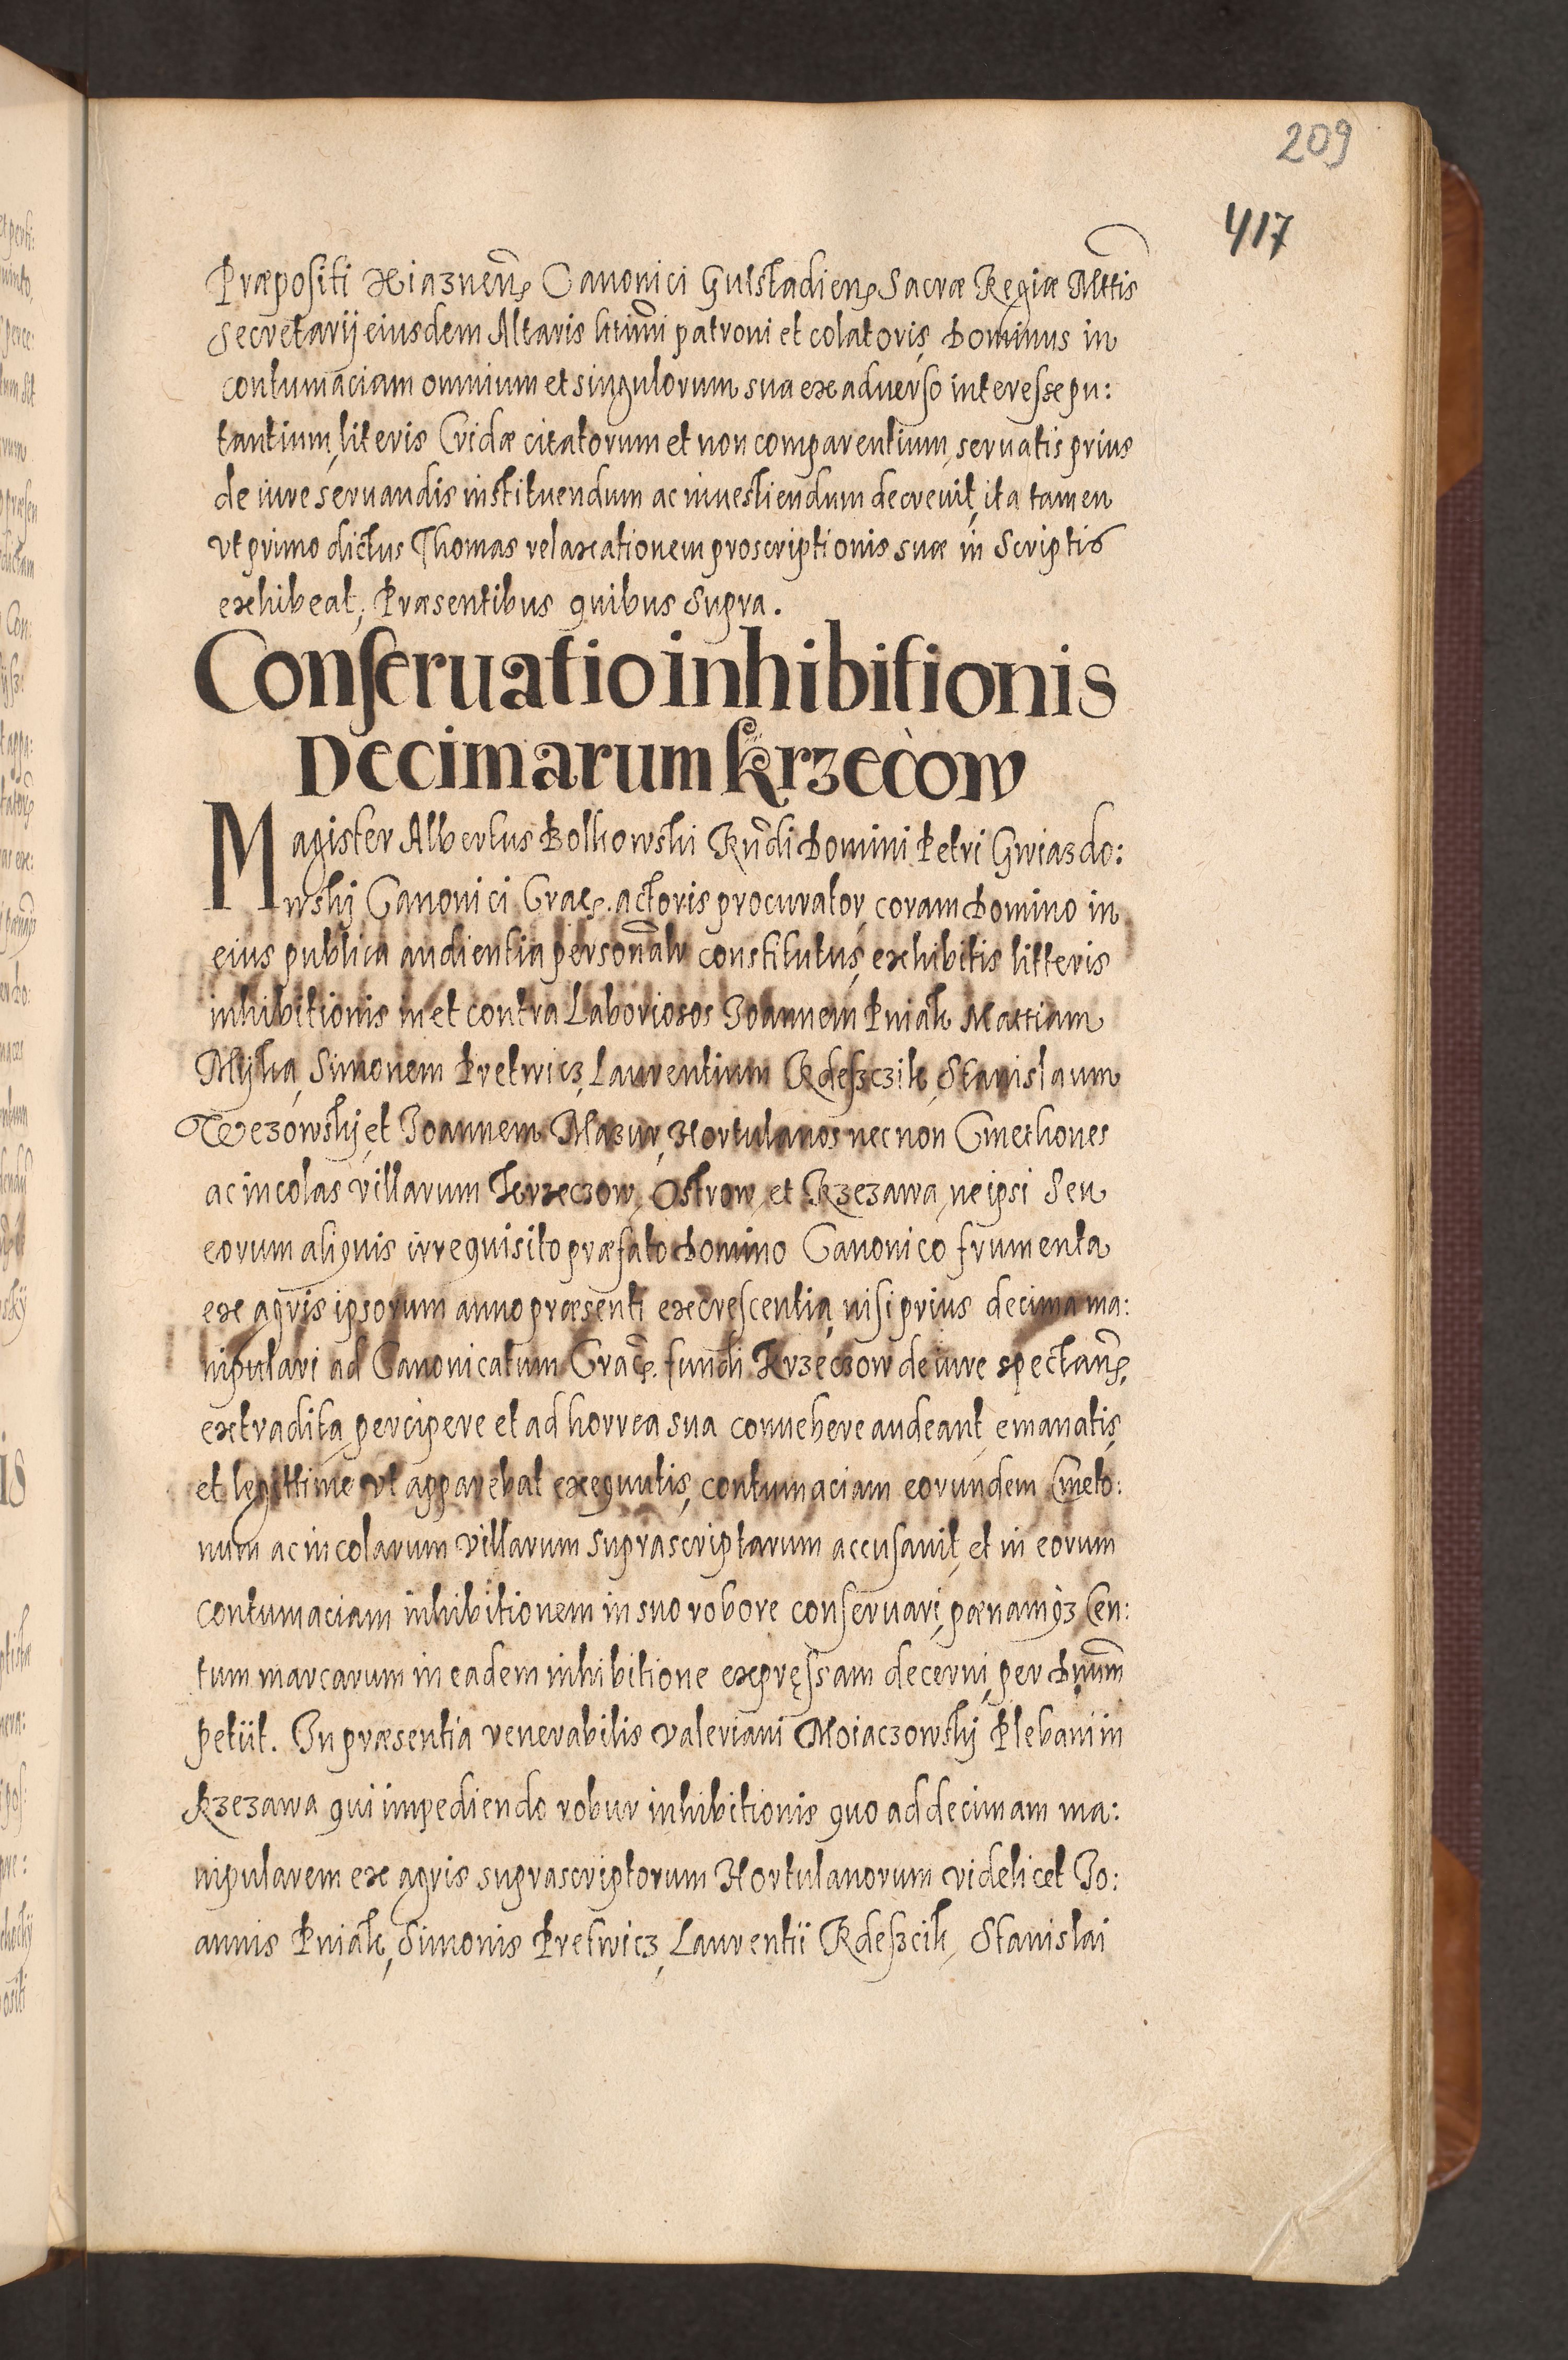 209
417
Præpositi Xiaznen̄ Canonici Gutstadien Sacræ Regiæ Mttis
Secretarij eiusdem Altaris ltimi patroni et colatoris, Dominus in
contumaciam omnium et singulorum sua ex aduerso interesse pu:
tantium, literis Cridæ citatorum et non comparentium, seruatis prius
de iure seruandis instituendum ac inuestiendum decreuit, ita tamen
vt primo dictus Thomas relaxationem proscriptionis suæ in Scriptis
exhibeat, Præsentibus quibus Supra.
Conseruatio inhibitionis
Decimarum Krzeczow
Magister Albertus Bolkowski Rn̄di Domini Petri Gwiazdo:
wskij Canonici Crac. actoris procurator, coram Domino in
eius publica audientia personalr constitutus, exhibitis litteris
inhibitionis in et contra Laboriosos Joannem Pniak Mattiam
Mijka, Simonem Pretwicz, Laurentium Rdeszczik, Stanislaum
Wezowskij, et Joannem Mazur, Hortulanos nec non Cmethones
ac incolas villarum Krzeczow, Ostrow, et Rzezawa, ne ipsi Seu
eorum aliquis irrequisito præfato Domino Canonico frumenta
ex agris ipsorum anno præsenti excrescentia, nisi prius decima ma:
nipulari ad Canonicatum Crac. fundi Krzeczow de iure spectan̄,
extradita, percipere et ad horrea sua conuehere audeant, emanatis,
et legittime vt apparebat exequutis, contumaciam eorundem Cmeto:
num ac incolarum villarum suprascriptarum accusauit, et in eorum
contumaciam inhibitionem in suo robore conseruari, pænamqz Cen:
tum marcarum in eadem inhibitione expręssam decerni, per Dnum̄
petiit. In præsentia venerabilis Valeriani Moiaczowskij Plebani in
Rzezawa qui impediendo robur inhibitionis quo ad decimam ma:
nipularem ex agris suprascriptorum Hortulanorum videlicet Jo:
annis Pniak, Simonis Pretwicz, Laurentii Rdeszcik, Stanislai